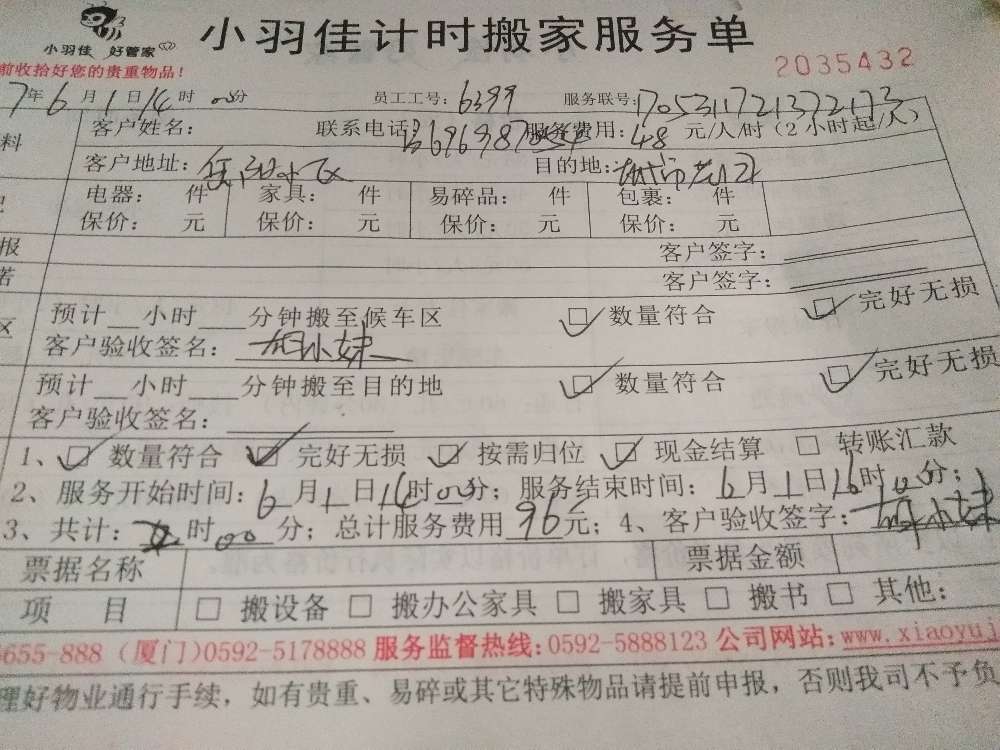 小羽佳 好管家
小羽佳计时搬家服务单
前收拾好您的贵重物品!
2035432
7年6月1日14时00分 员工工号:6399 服务联号:1705311721372173
料 客户姓名: 联系电话: 服务费用:48元/人/时(2小时起/人)
客户地址: 目的地:
电器: 件 家具: 件 易碎品: 件 包裹: 件
保价: 元 保价: 元 保价: 元 保价: 元
报 客户签字:
若 客户签字:
区 预计__小时___分钟搬至候车区 ☑ 数量符合 ☑ 完好无损
客户验收签名:胡小妹
预计__小时___分钟搬至目的地 ☑ 数量符合 ☑ 完好无损
客户验收签名:
1、☑ 数量符合 ☑ 完好无损 ☑ 按需归位 ☑ 现金结算 □ 转账汇款
2、服务开始时间:6月1日14时00分;服务结束时间:6月1日16时00分;
3、共计: 时00分;总计服务费用96元;4、客户验收签字:胡小妹
票据名称 票据金额
项 目 □ 搬设备 □ 搬办公家具 □ 搬家具 □ 搬书 □ 其他:
655-888(厦门)0592-5178888 服务监督热线:0592-5888123 公司网站:www.xiaoyuj
理好物业通行手续,如有贵重、易碎或其它特殊物品请提前申报,否则我司不予负